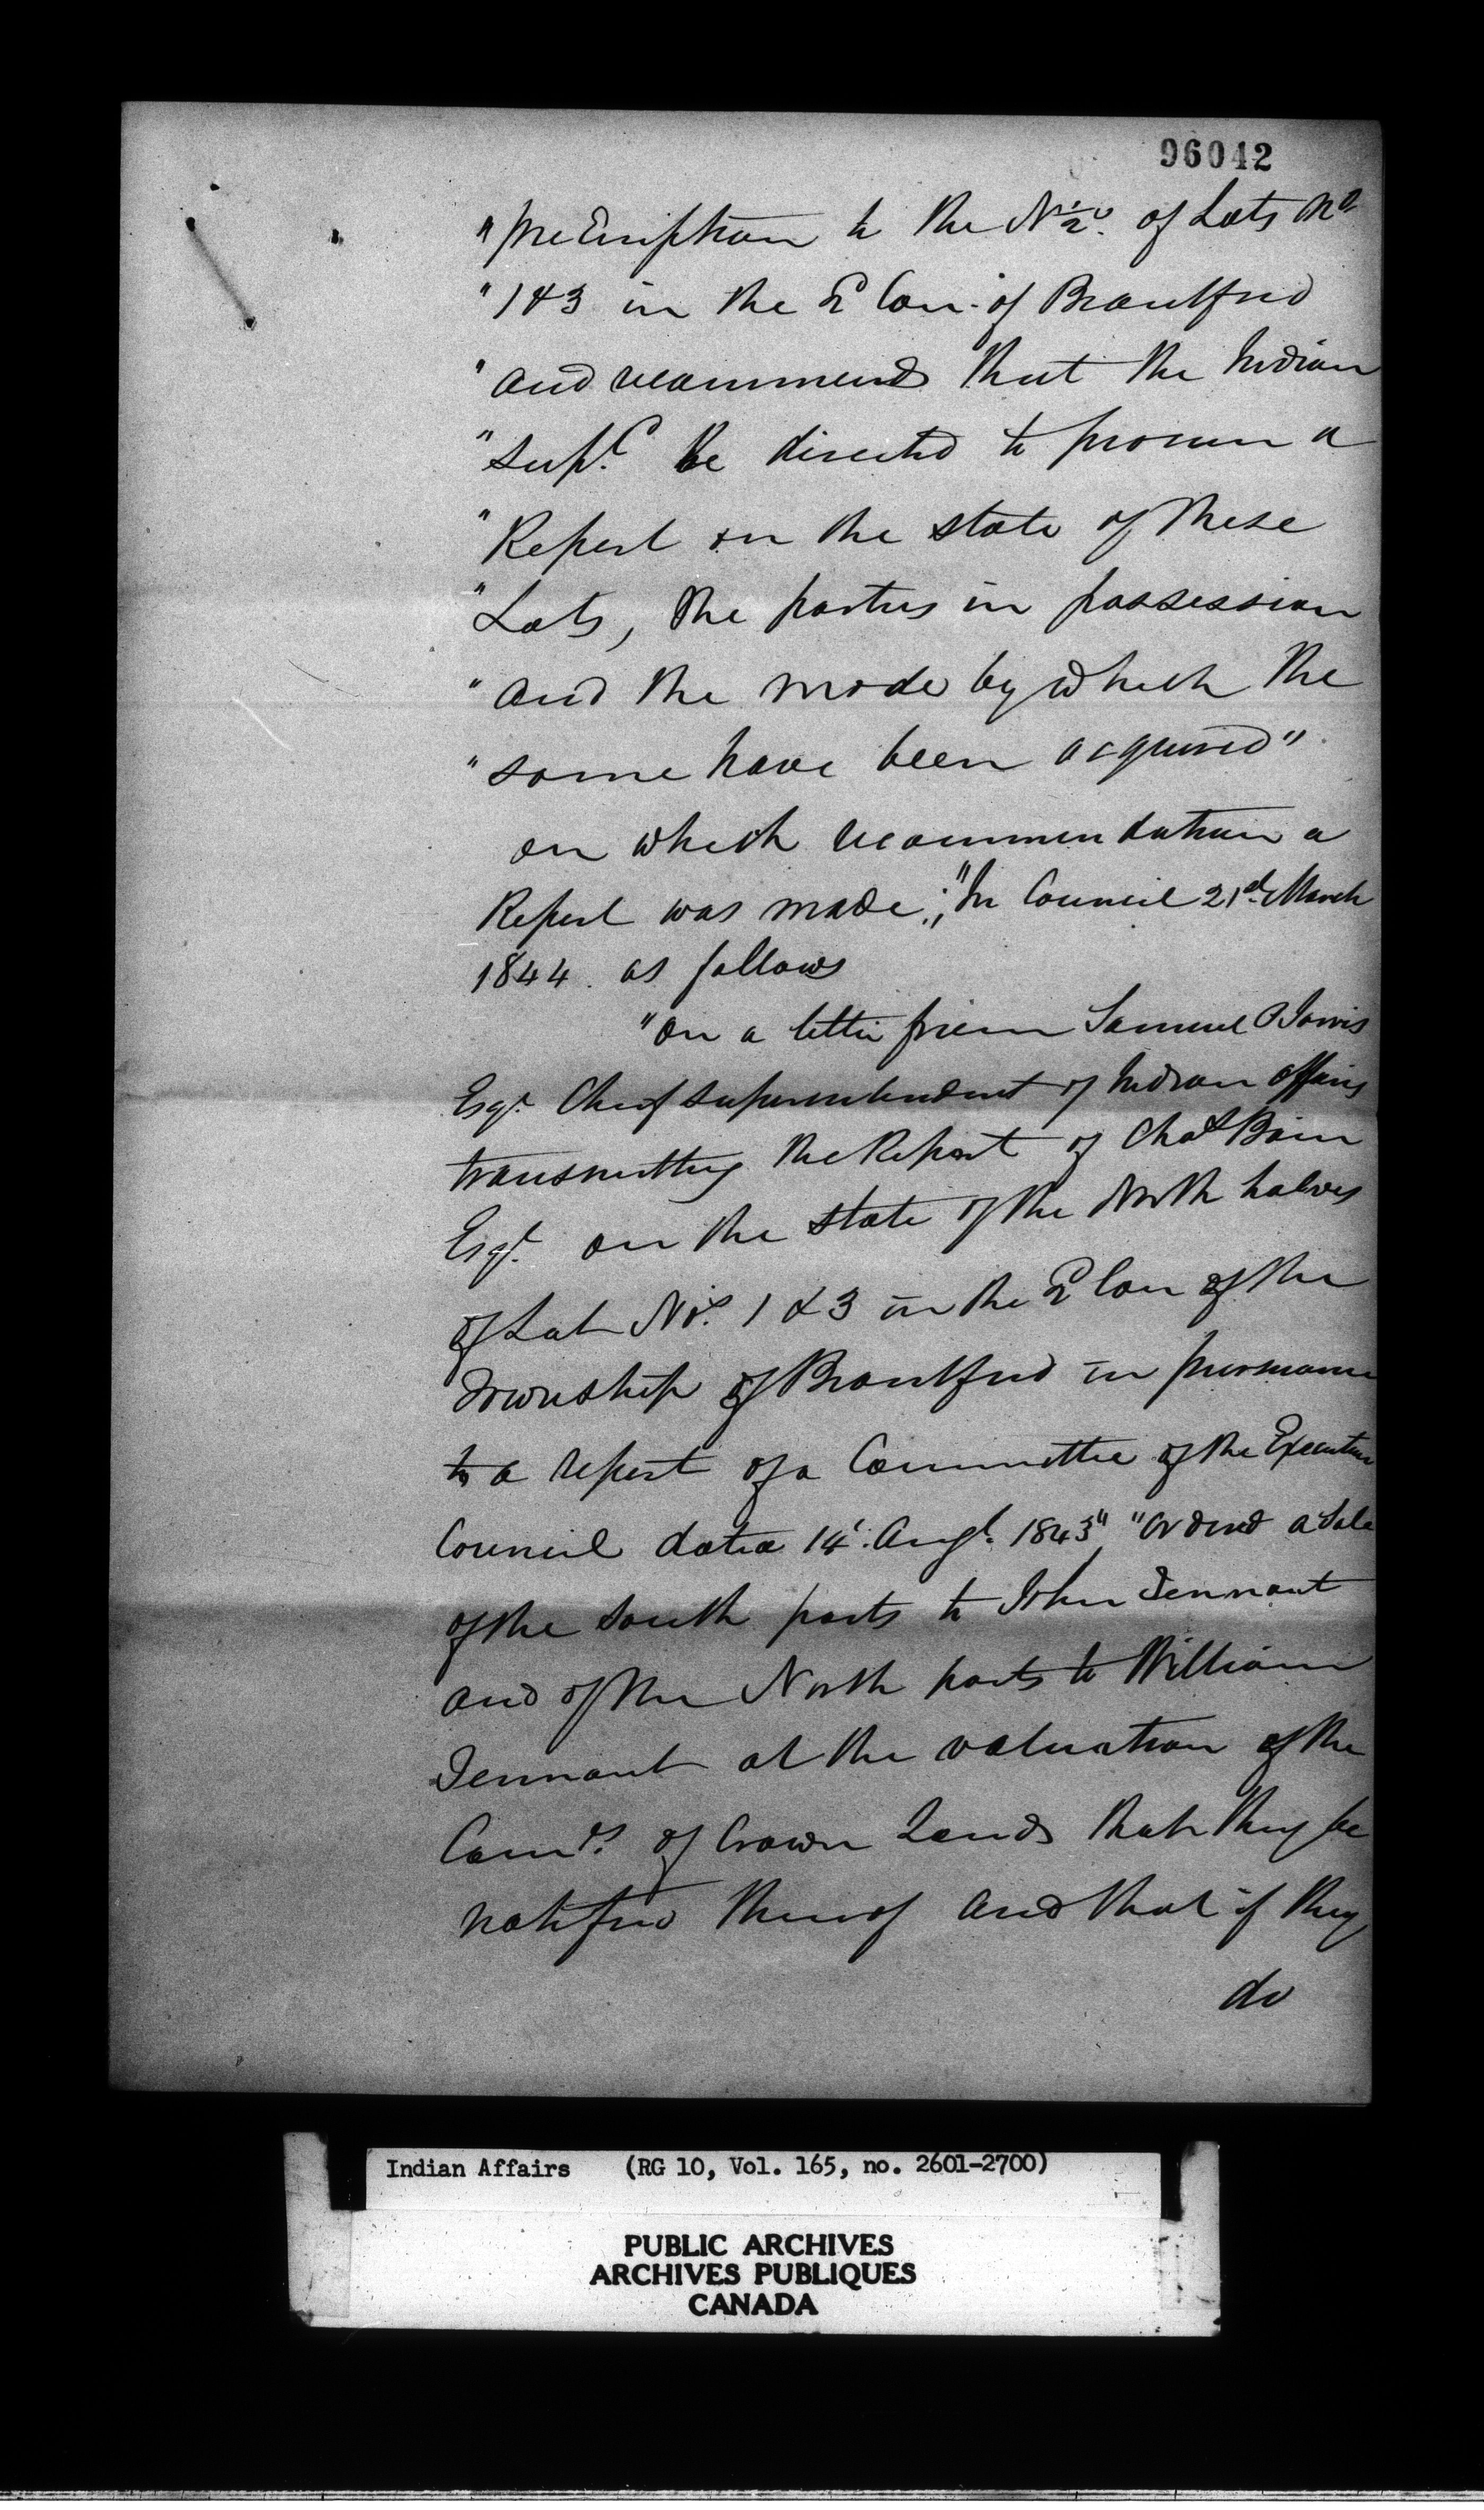 96042
"preemption to the N ½ of Lots No
"1 & 3 in the 2 Con. of Brantford
"and recommends that the Indian
"Supt be directed to procure a
"Report on the state of these
"Lots, the parties in possession
"and the mode by which the
"same have been acquired"
on which recommendation a
Report was made; "In Council 21st March
1844. as follows
"On a letter from Samuel P Jarvis
Esqr. Chief Superintendent of Indian Affairs
transmitting the Report of Chas Bain
Esqr. on the state of the North halves
of Lots Nos. 1 & 3 in the 2 Con of the
Township of Brantford in pursuance
to a report of a Committee of the Executive
Council dated 14. Augt. 1843" "ordered a Sale
of the South parts to John Tennant
and of the North parts to William
Tennant at the valuation of the
Comrs. of Crown Lands that they be
notified thereof and that if they
do
Indian Affairs (RG 10, Vol. 165, no. 2601-2700)
PUBLIC ARCHIVES
ARCHIVES PUBLIQUES
CANADA